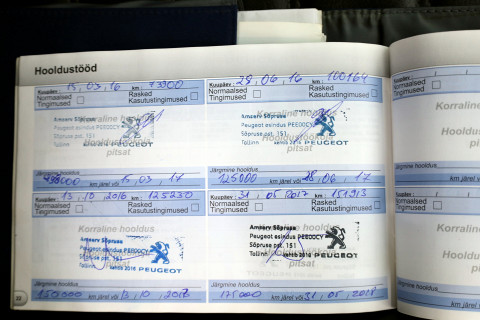 Hooldustööd
Kuupäev 15, 03, 16 km 73900
Normaalsed Tingimused
Rasked Kasutustingimused
Korraline hooldus
Amserv Sõpruse
Peugeot esindus PEE00CY
Sõpruse pst. 151
Tallinn
pitsat
Järgmine hooldus
km järel või 15, 03, 17
Kuupäev 28, 06, 16 km 100164
Normaalsed Tingimused
Rasked Kasutustingimused
Korraline hooldus
Amserv Sõpruse
Peugeot esindus PEE00CY
Sõpruse pst. 151
Tallinn kehtib 2016 PEUGEOT
pitsat
Järgmine hooldus
125000 km järel või 28, 06, 17
Kuupäev 13, 10, 2016 km 125250
Normaalsed Tingimused
Rasked Kasutustingimused
Korraline hooldus
Amserv Sõpruse
Peugeot esindus PEE00CY
Sõpruse pst. 151
Tallinn kehtib 2016 PEUGEOT
Järgmine hooldus
150000 km järel või 13, 10, 2018
Kuupäev 31, 05, 2017 km 151913
Normaalsed Tingimused
Rasked Kasutustingimused
Korraline hooldus
Amserv Sõpruse
Peugeot esindus PEE00CY
Sõpruse pst. 151
Tallinn kehtib 2016 PEUGEOT
pitsat
Järgmine hooldus
175000 km järel või 31, 05, 2018
Kuupäev
Normaalsed Tingimused
Korraline
Hooldustöökoja
Järgmine hooldus
Kuupäev
Normaalsed Tingimused
Korraline
Hooldus
Järgmine hooldus